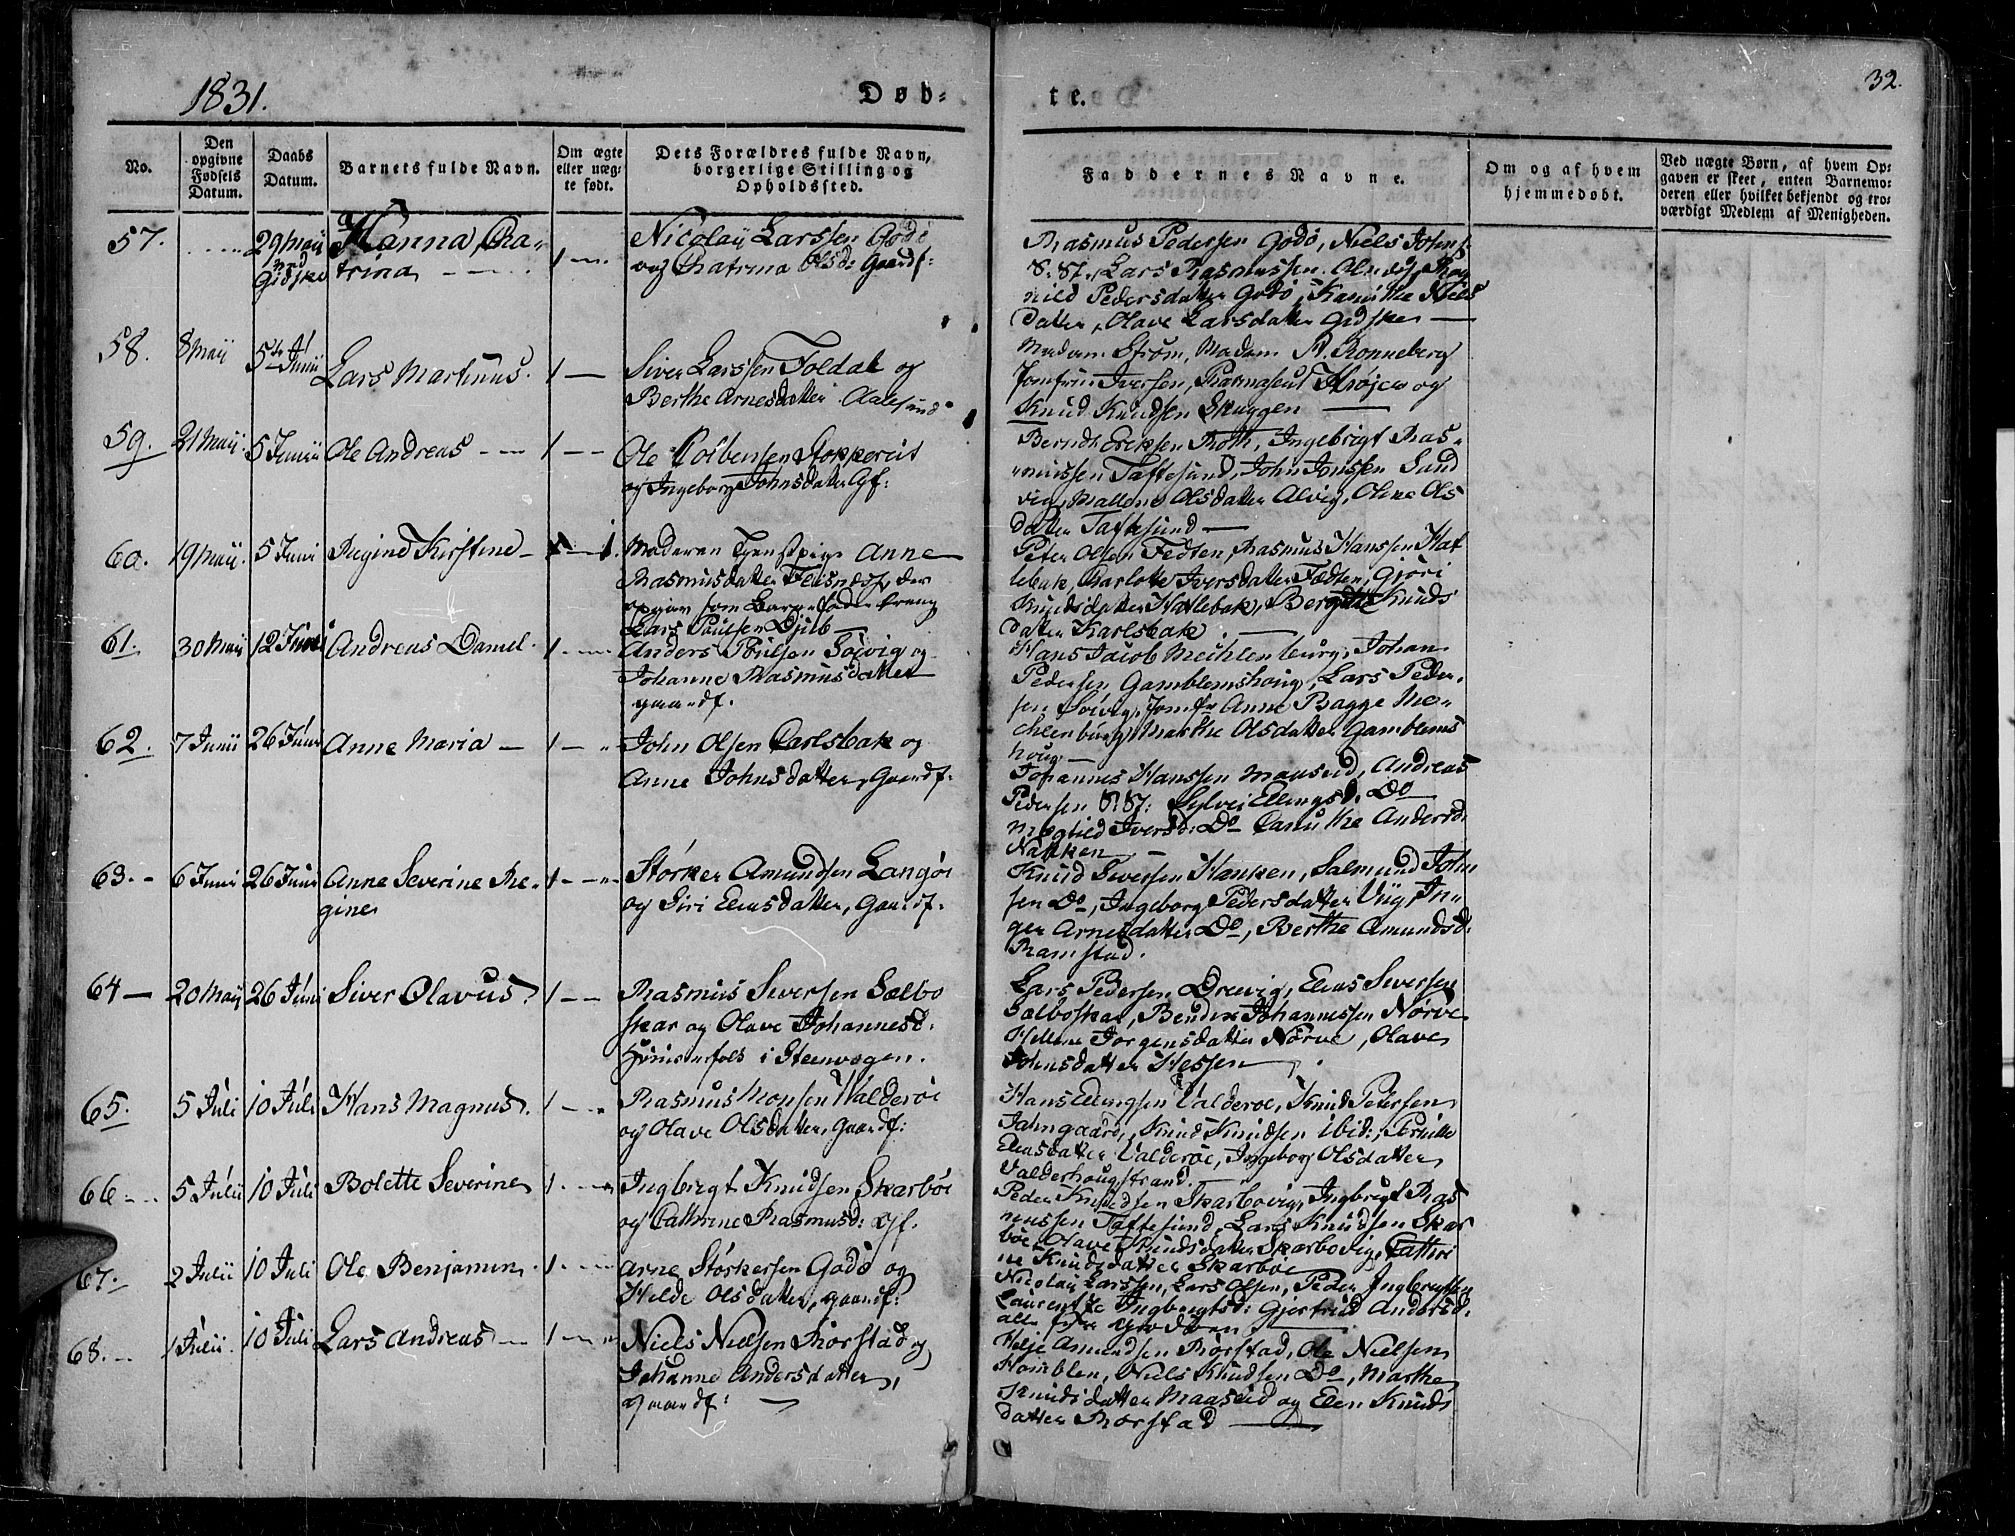 1831.
Døb-
te.
32.
No.
Den opgivne Fødsels Datum.
Daabs Datum.
Barnets fulde Navn.
Om ægte eller uæg-te født.
Dets Forældres fulde Navn, borgerlige Stilling og Opholdssted.
Faddernes Navne.
Om og af hvem hjemmedøbt.
Ved uægte Børn, af hvem Op-gaven er skeet, enten Barnemo-deren eller hvilket bekjendt og tro-værdigt Medlem af Menigheden.
57. 29 Maji Gidske
Hanna Cha-
trina
1
Nicolay Larssen Godø
og Chatrina Olsd: Gaardf:
Rasmus Pedersen Godø, Niels Johns:
Lars Rasmussen
nild Pedersdatter Godø, Kanuthe Niels
datter, Olave Larsdatter Gidske
58. 8 Maij 5te Junii Lars Martinus. 1
Siver Larssen Foldal og
Berthe Arnesdatter Aalesund
Madam Strøm, Madam A. Rønneberg
Jomfru Iversen, og
Knud Knudsen Skuggen
59. 21 Maij 5 Junii Ole Andreas 1
Ole Colbensen
og Ingeborg Johnsdatter Gf:
Berndt Eriksen Roth, Ingebrigt Ras-
mussen Taftesund, John Jonssen Sand
vig, Mallene Olsdatter Alvig, Olene Ols
datter Taftesund
60. 19 Maij. 5 Juni Regine Kirstine 1.
Moderen Anne
Rasmusdatter Flisnæss, der
opgiver som Barnefader
Lars Poulsen Djub
Peter Olsen Fedten, Rasmus Hanssen Hat
lebak, Charlotte Iversdatter Fedten, Gjøri
Knudsdatter Hatlebak, Berethe Knuds
datter Karlsbak.
61. 30 Maij 12 Juni Andreas Daniel. 1
Anders Poulsen Solvig og
Johanne Rasmusdatter
gaardf.
Hans Jacob Mechlenburg, Johan
Pedersen Gamblemshoug, Lars Peder-
sen Solvig, Jomfr Anne Bagge Me-
chlenburg, Marthe Olsdatter Gamblems
houg
62. 7 Junii 26 Juni Anne Maria 1
John Olsen Carlsbak og
Anne Johnsdatter, Gaardf:
Johannes Hanssen Maaseid, Andreas
Pedersen Sylvei Ellingsd. Do
Magtild Iversd: Do Canuthe Andersd:
63. 6 Juni 26 Juni Anne Severine Re-
gine
1
Størker Amundsen Langøe
og Siri Eliasdatter, Gaardf.
Knud Sivertsen Hanken, Salmund John
sen Do, Ingeborg Pedersdatter Viig In-
ger Arnesdatter Do, Berthe Amundsd:
Ramstad.
64 20 Maij 26 Juni Siver Olavus. 1
Rasmus Severssen Sælbo
skar og Olave Johannesd:
Huusmanfolk i Steenvogen.
Lars Pedersen Drevig, Elias Severssen
Sælboskar, Bendix Johannessen Nørve
Hellene Jørgensdatter Nørve, Olave
Johnsdatter Hessen
65. 5 Juli 10 Juli Hans Magnus. 1
Rasmus Monsen Walderøe
og Olave Olsdatter, Gaardf:
Hans Ellingsen Valderøe, Knud Petersen
Jahngaard, Knud Knudsen ibid:, Pernille
Eliasdatter Valderøe, Ingeborg Olsdatter
Valderhougstrand.
66 5 Julii 10 Juli Bolette Severine 1
Ingbrigt Knudsen Skarbøe
og Cathrine Rasmusd: Gf.
Peder Knudsen Skarbovig, Ingbrigt Ras
mussen Taftesund, Lars Knudsen Skar
bøe, Olave Knudsdatter Skarbovig, Cathri
ne Knudsdatter Skarbøe
67. 2 Julii 10 Juli Ole Benjamin 1
Arne Størkersen Godø og
Hilde Olsdatter, gaardf:
Nicolai Larssen, Lars Olsen, Peder Ingbrigtsen
Laurentze Ingbrigtsd: Gjertrud Andersd:
alle fra Godøen
68. 1 Julii. 10 Juli Lars Andreas 1
Niels Nielsen Rørstad og
Johanne Andersdatter,
gaardf:
Helje Amundsen Rørstad, Ole Nielsen
Hamblen, Niels Knudsen Do, Marthe
Knudsdatter Maaseid og Elen Knuds
datter Rørstad